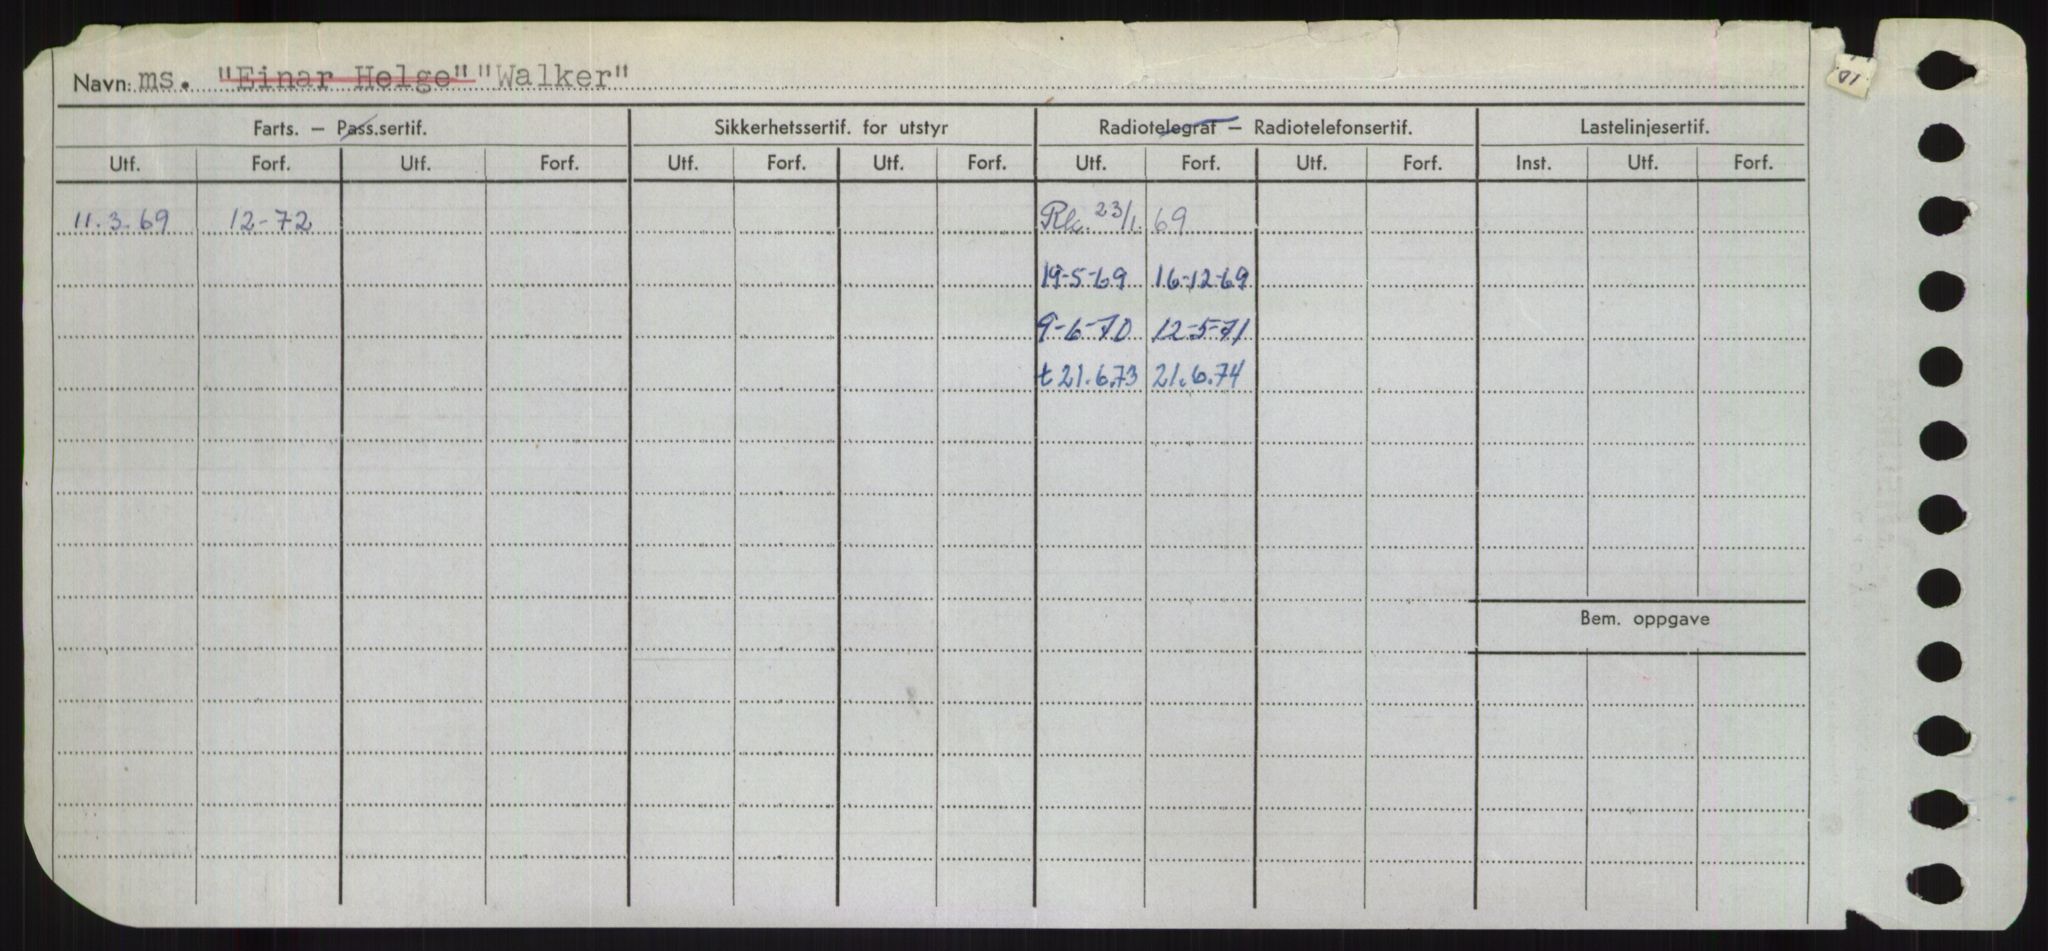 Navn: ms. "Einar Helge" "Walker"
Farts. – Pass.sertif. Sikkerhetssertif. for utstyr Radiotelegraf – Radiotelefonsertif. Lastelinjesertif.
Utf. Forf. Utf. Forf. Utf. Forf. Utf. Forf. Utf. Forf. Utf. Forf. Inst. Utf. Forf.
11.3.69 12-72 23/1. 69
19-5-69 16-12-69
9-6-70 12-5-71
t 21.6.73 21.6.74
Bem. oppgave